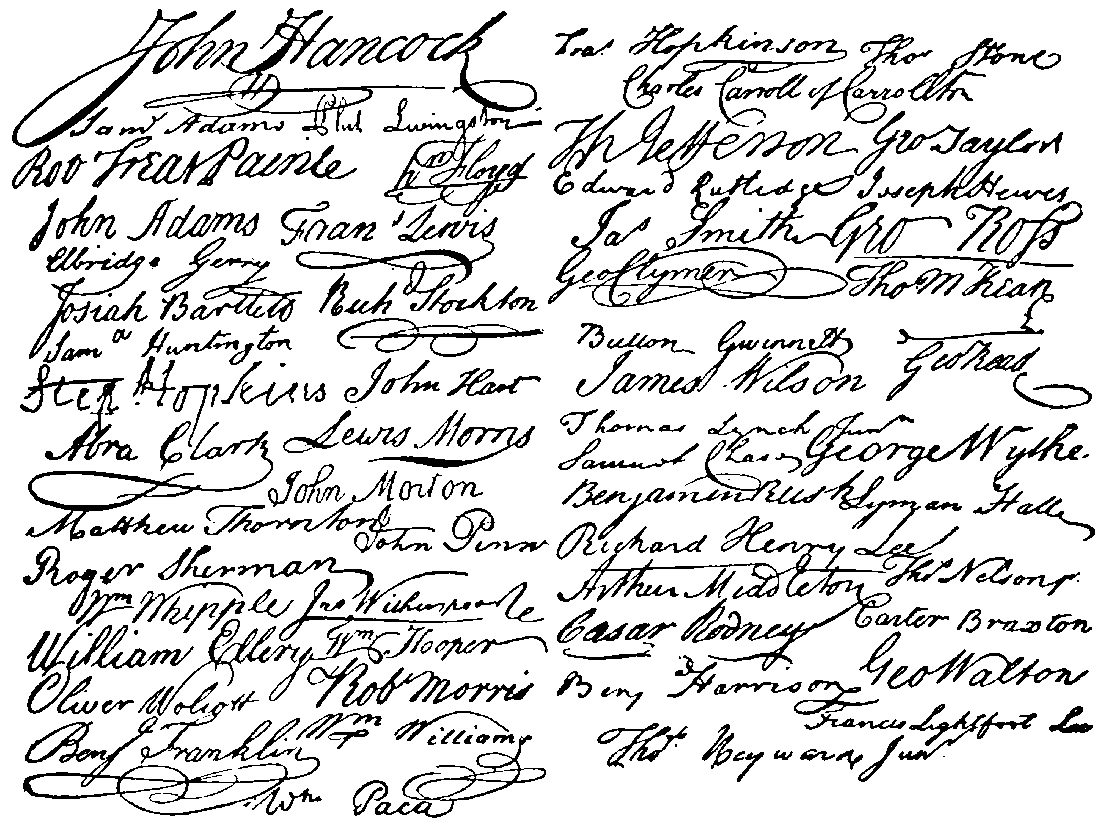 John Hancock
Saml Adams Phil Livingston
Rob Treat Paine Wm Floyd
John Adams Frans Lewis
Elbridge Gerry
Josiah Bartlett Richd Stockton
Saml Huntington
Step Hopkins John Hart
Abra Clark Lewis Morris
John Morton
Matthew Thornton John Penn
Roger Sherman
Wm Whipple Jno Witherspoon
William Ellery Wm Hooper
Oliver Wolcott Robt Morris
Benj Franklin Wm Williams
Wm Paca
Fras Hopkinson Thos Stone
Charles Carroll of Carrollton
Th Jefferson Geo Taylor
Edward Rutledge Joseph Hewes
Jas Smith Geo Ross
Geo Clymer Tho M Kean
Button Gwinnett Geo Read
James Wilson
Thomas Lynch Junr
Samuel Chase George Wythe
Benjamin Rush Lyman Hall
Richard Henry Lee
Arthur Middleton Thos Nelson jr
Cæsar Rodney Carter Braxton
Benj Harrison Geo Walton
Francis Lightfoot Lee
Thos Heyward Junr